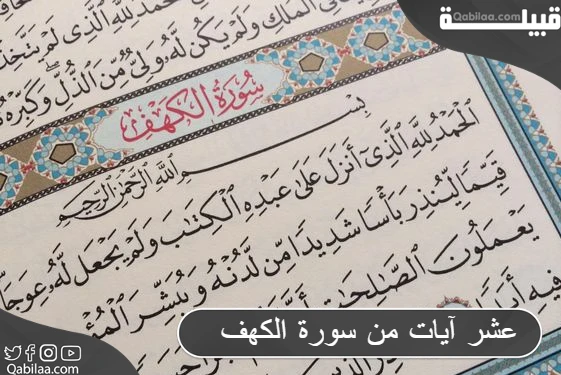 قبيلة
Qabilaa.com
الملك ولم يكن له
ولي من الذل وكبره
سُورَةُ الكَهْفِ
بِسْمِ اللَّهِ الرَّحْمَٰنِ الرَّحِيمِ
الْحَمْدُ لِلَّهِ الَّذِي أَنزَلَ عَلَىٰ عَبْدِهِ الْكِتَابَ وَلَمْ يَجْعَل لَّهُ عِوَجَا
قَيِّمًا لِّيُنذِرَ بَأْسًا شَدِيدًا مِّن لَّدُنْهُ وَيُبَشِّرَ
يَعْمَلُونَ الصَّالِحَاتِ
فِيهِ
عشر آيات من سورة الكهف
Qabilaa.com